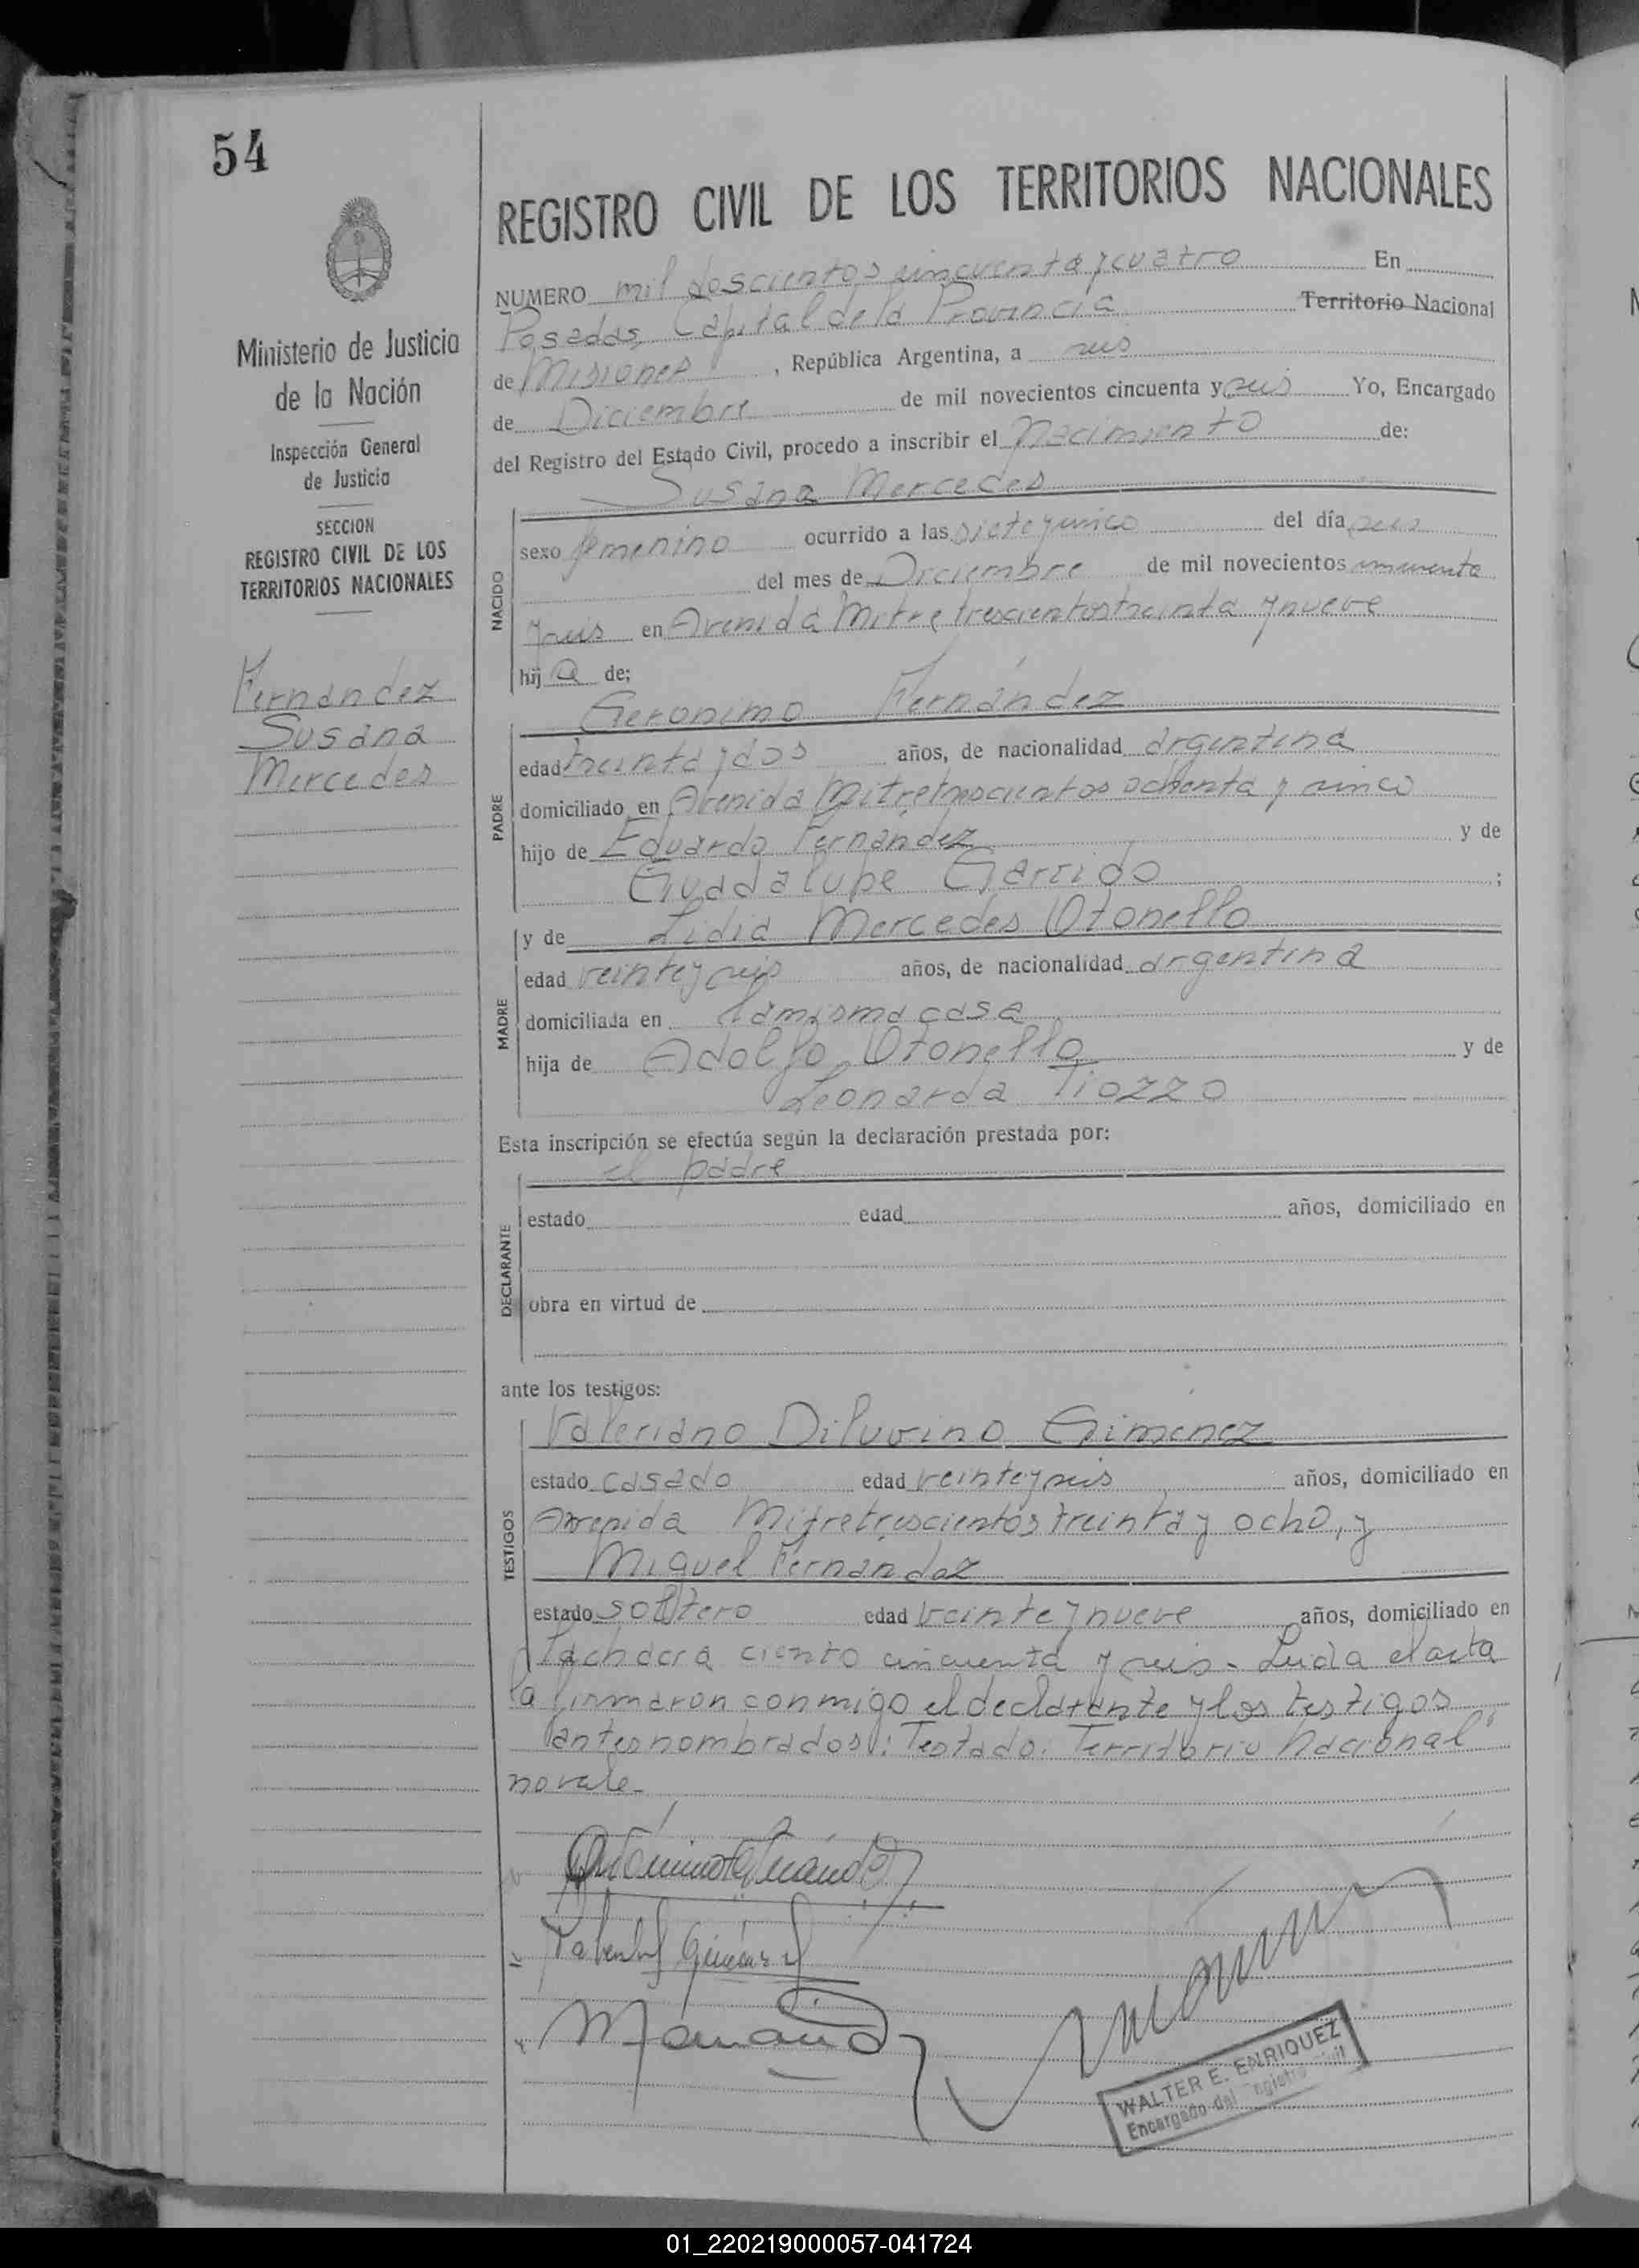 54
REGISTRO CIVIL DE LOS TERRITORIOS NACIONALES
Ministerio de Justicia
de la Nación
Inspección General
de Justicia
SECCION
REGISTRO CIVIL DE LOS
TERRITORIOS NACIONALES
Fernandez
Susana
Mercedes
NUMERO mil doscientos cincuenta y cuatro En
Posadas, Capital de la Provincia Territorio Nacional
de Misiones, República Argentina, a seis
de Diciembre de mil novecientos cincuenta y seis Yo, Encargado
del Registro del Estado Civil, procedo a inscribir el Nacimiento de:
Susana Mercedes
NACIDO
sexo femenino ocurrido a las siete y cinco del día seis
del mes de Diciembre de mil novecientos cincuenta
y seis en Avenida Mitre trescientos treinta y nueve
hija de;
Geronimo Fernández
PADRE
edad treinta y dos años, de nacionalidad argentina
domiciliado en Avenida Mitre trescientos ochenta y cinco
hijo de Eduardo Fernández y de
Guadalupe Garrido ;
y de Lidia Mercedes Otonello
MADRE
edad veinte y seis años, de nacionalidad argentina
domiciliada en la misma casa
hija de Adolfo Otonello y de
Leonarda Tiozzo
Esta inscripción se efectúa según la declaración prestada por:
el padre
DECLARANTE
estado edad años, domiciliado en
obra en virtud de
ante los testigos:
Valeriano Diluvino Gimenez
TESTIGOS
estado casado edad veinte y seis años, domiciliado en
Avenida Mitre trescientos treinta y ocho, y
Miguel Fernández
estado soltero edad veinte y nueve años, domiciliado en
ciento cincuenta y seis - Leida el acta
la firmaron conmigo el declarante y los testigos
antes nombrados: Testado: Territorio Nacional"
no vale.
WALTER E. ENRIQUEZ
Encargado del Registro Civil
01_220219000057-041724